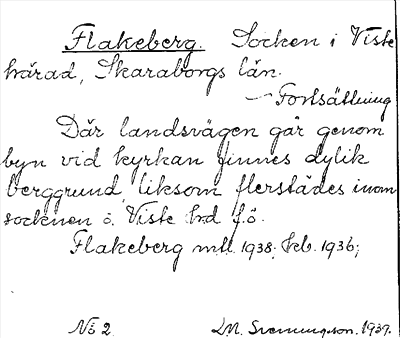 Flakeberg. Socken i Viste
härad, Skaraborgs län.
— Fortsättning
Där landsvägen går genom
byn vid kyrkan finnes dylik
berggrund, liksom flerstädes inom
socknen o. Viste hrd f.ö.
Flakeberg mtl. 1938; kb. 1936;
No 2. DM. Svenungson. 1937.